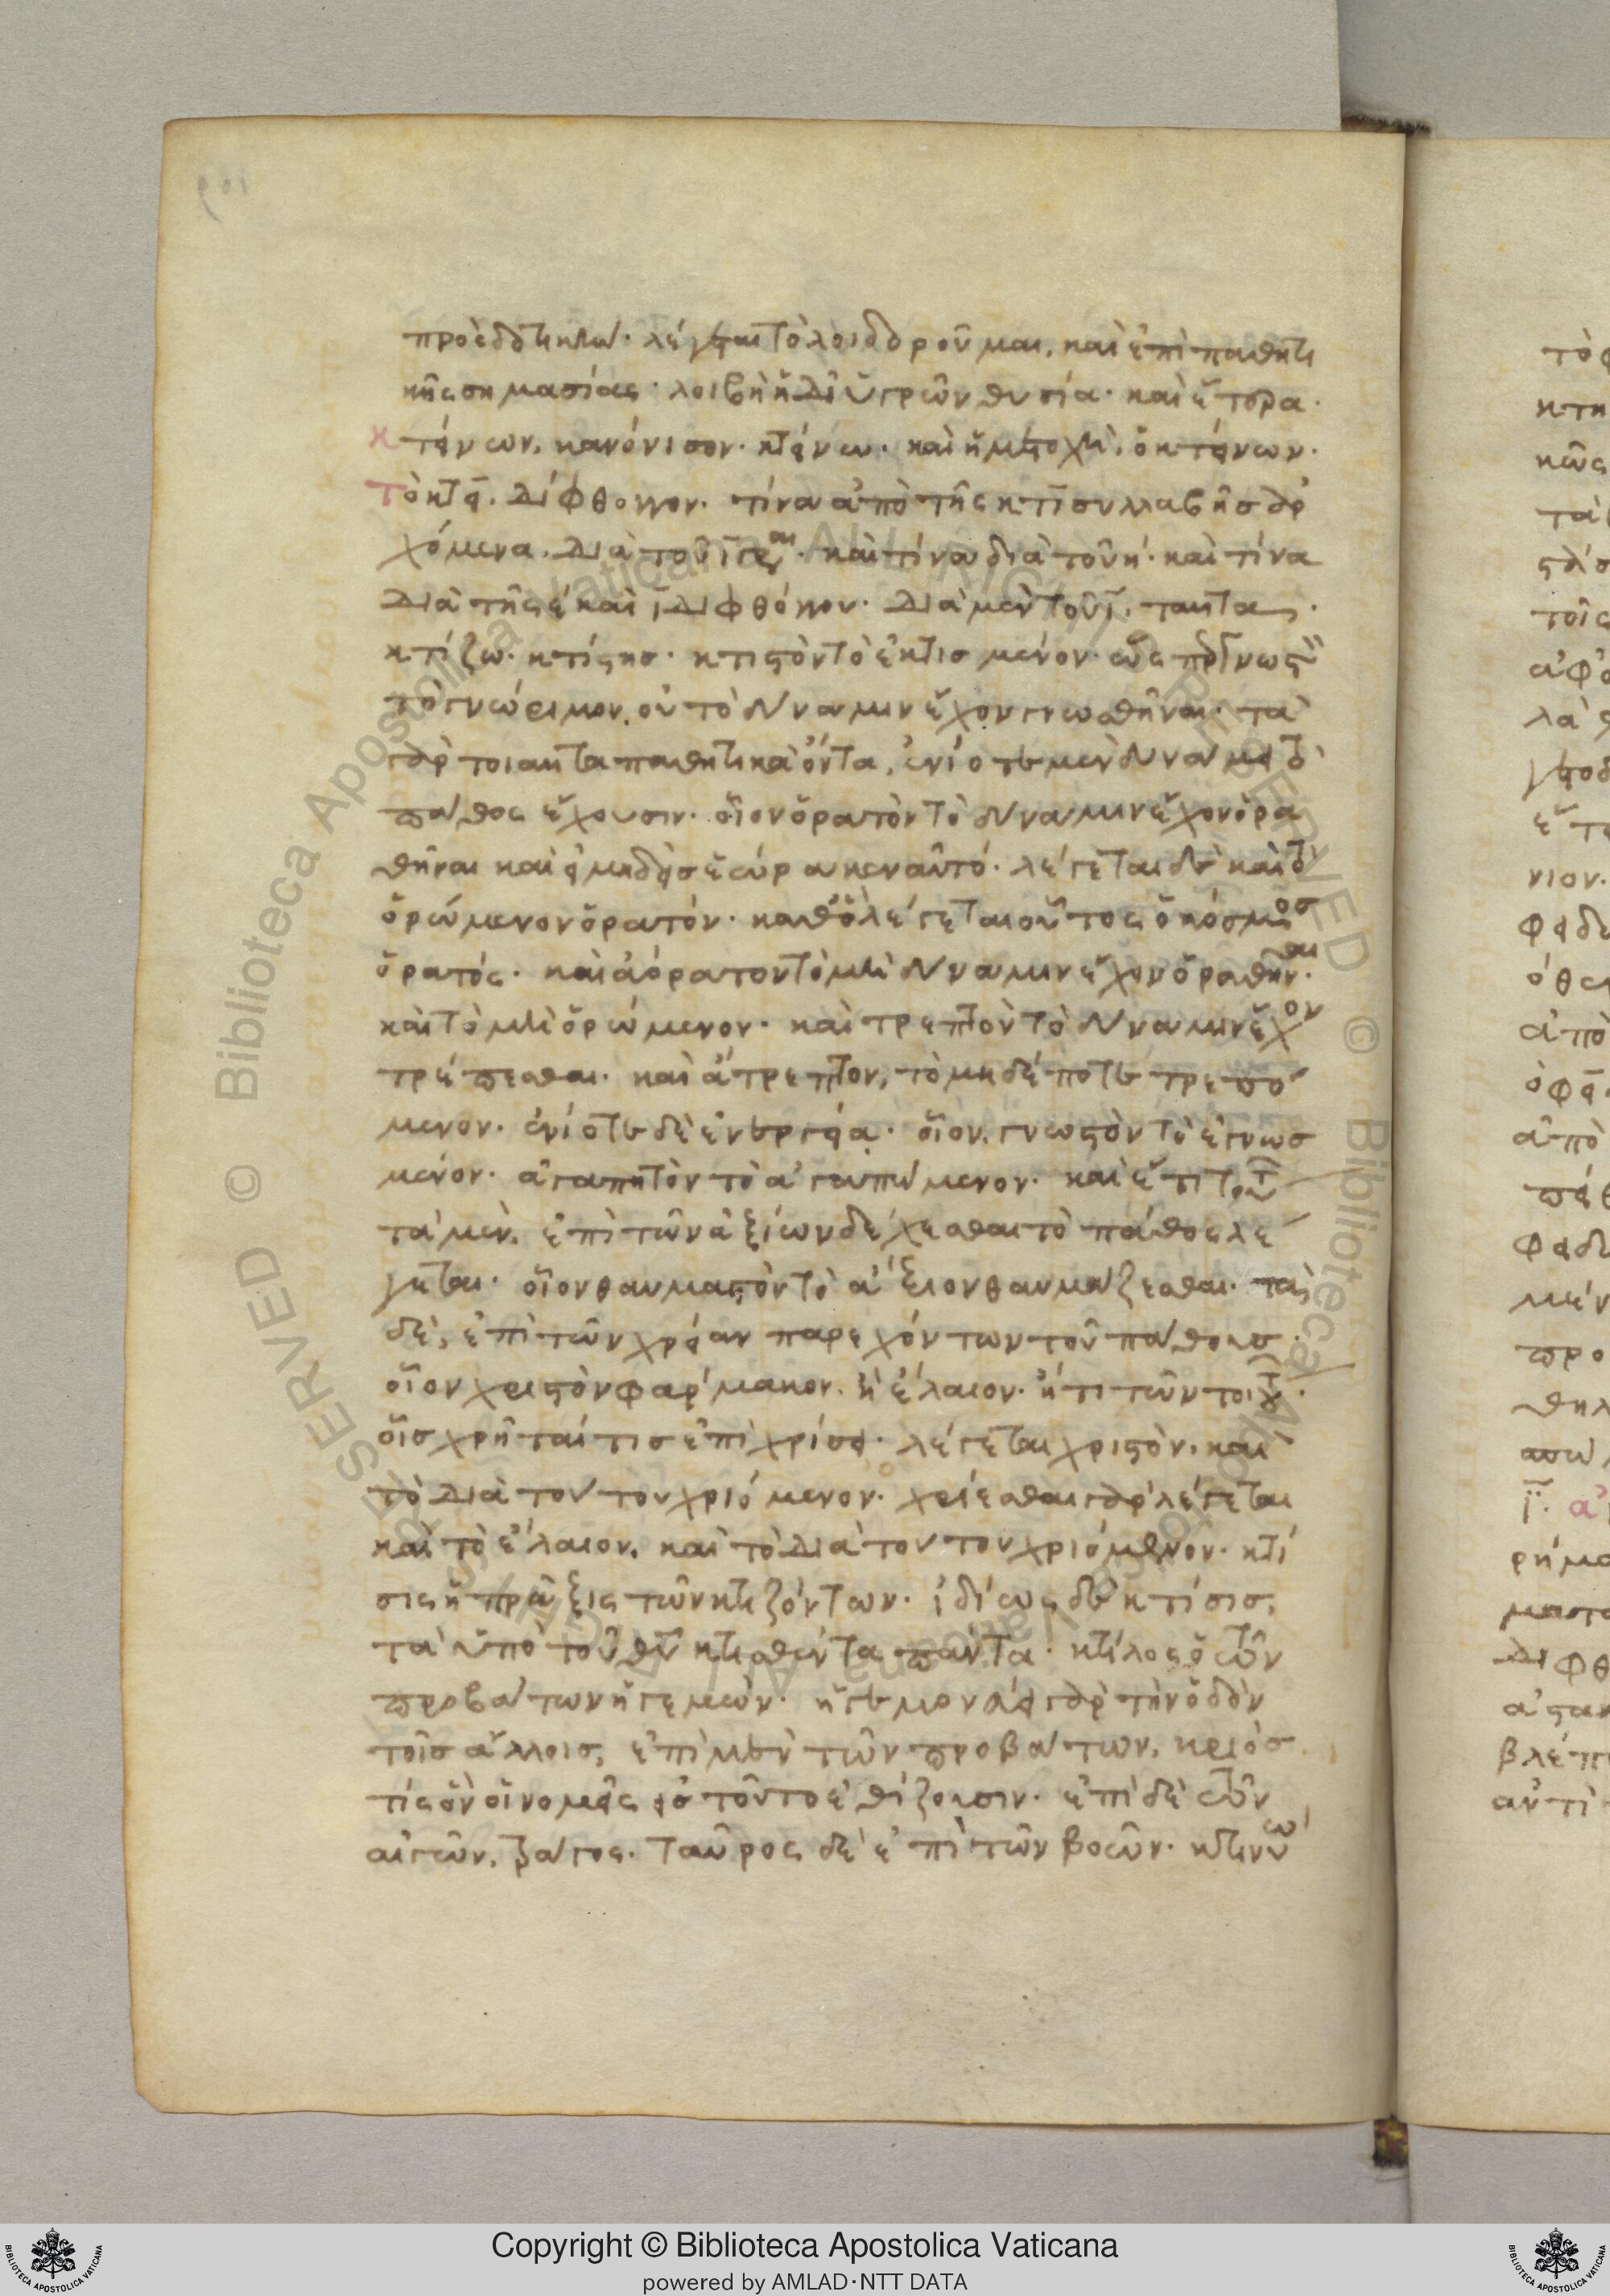 προεδότικῶ. λέγεται τὸ λοιδοροῦμαι. καὶ ἐπὶ παθητι
κῆς σημασίας. λοιβὴ ἡ δι ὑγρῶν θυσία. καὶ ἕτερα.
κτείνων. κανόνισον. κτείνω. καὶ ἡ μετοχὴ. ὁ κτείνων.
τὸ κτει. δίφθογγον. τίνα ἀπὸ τῆς κτι συλλαβῆς ἀρ
χόμενα. διὰ τοῦ ι γράφεται. καὶ τίνα διὰ τοῦ η. καὶ τίνα
διὰ τῆς ε καὶ ι διφθόγγου. διὰ μὲν τοῦ ι. ταῦτα.
κτίζω. κτίστης. κτιστὸν τὸ ἐκτισμένον. ὡς γνωστ
τὸ γνώριμον. οὐ τὸ δύναμιν ἔχον γνωσθῆναι. τὰ
γὰρ τοιαῦτα παθητικὰ ὄντα. ἐνίοτε μὲν δυνάμει τὸ
πάθος ἔχουσιν. οἷον ὁρατὸν τὸ δύναμιν ἔχον ὁρα
θῆναι καὶ εἰ μηδεὶς ἑώρακεν αὐτό. λέγεται δὲ καὶ τὸ
ὁρώμενον ὁρατόν. καθὸ λέγεται οὗτος ὁ κόσμος
ὁρατός. καὶ ἀόρατον τὸ μὴ δύναμιν ἔχον ὁραθῆναι.
καὶ τὸ μὴ ὁρώμενον. καὶ τρεπτὸν τὸ δύναμιν ἔχον
τρέπεσθαι. καὶ ἄτρεπτον, τὸ μηδέποτε τρεπό
μενον. ἐνίοτε δὲ ἐνεργείᾳ. οἷον, γνωστὸν τὸ ἐγνωσ
μένον. ἀγαπητὸν τὸ ἀγαπώμενον. καὶ ἔτι τούτ
τὰ μὲν. ἐπὶ τῶν ἀξίων δέχεσθαι τὸ πάθος λέ
γεται. οἷον θαυμαστὸν τὸ ἄξιον θαυμάζεσθαι. τὰ
δὲ, ἐπὶ τῶν χρείαν παρεχόντων τοῦ πάθους.
οἷον χριστὸν φάρμακον. ἢ ἔλαιον. ἤ τι τῶν τοιούτ.
οἷς χρῆταί τις ἐπὶ χρίσει. λέγεται χριστὸν. καὶ
τὸ διὰ τούτου χριόμενον. χρίεσθαι γὰρ λέγεται
καὶ τὸ ἔλαιον. καὶ τὸ διὰ τούτου χριόμενον. κτί
σις ἡ πρᾶξις τῶν κτιζόντων. ἰδίως δὲ κτίσις,
τὰ ὑπὸ τοῦ θυ κτισθέντα πάντα. κτίλος ὁ τῶν
προβάτων ἡγεμών. ἡγεμονεύει γὰρ τὴν ὁδὸν
τοῖς ἄλλοις, ἐπὶ μὲν τῶν προβάτων. κριός
τις ὃν οἱ νομεῖς εἰς τοῦτο ἐθίζουσιν. ἐπὶ δὲ τῶν
αἰγῶν. τράγος. ταῦρος δὲ ἐπὶ τῶν βοῶν. κτιννύω